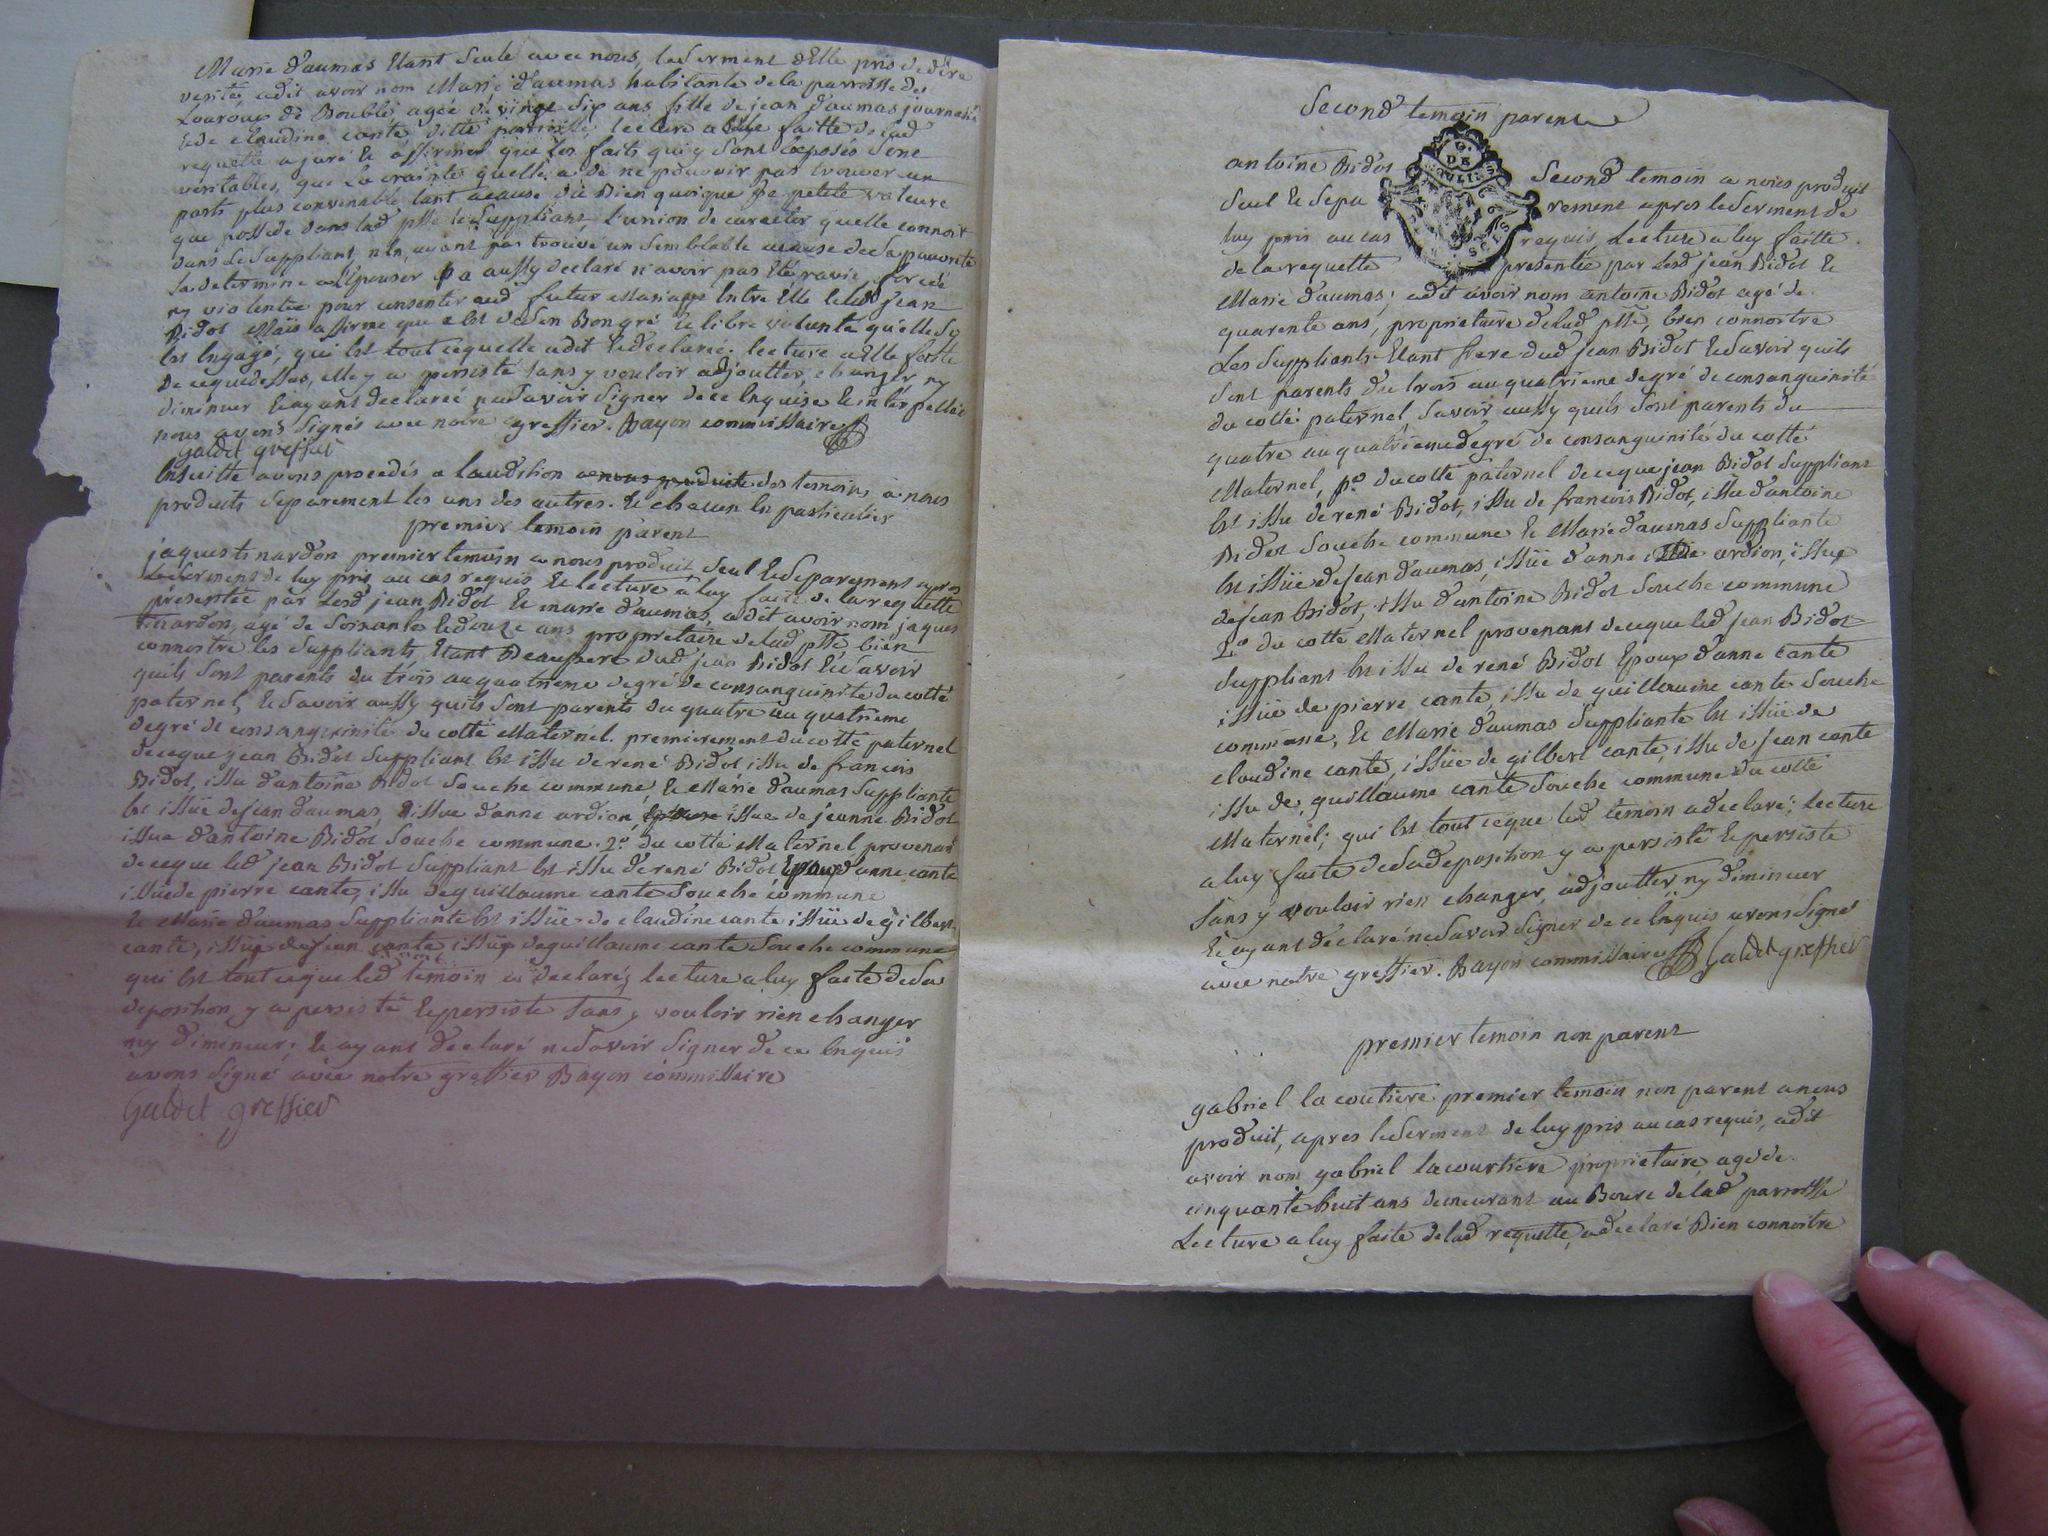 Marie d'aumas Etant Seule avec nous, le Serment d'Elle pris de dire
verité adit avoir nom Marie d'aumas habitante de la parroisse de
Louroux de Bouble, agée de vingt Six ans fille de jean d'aumas journalier
et de claudine cante ditte parroisse, lecture a Elle faitte de lad
requette a juré et affirmer que les faits qui y Sont Exposés Sont
veritables, que la crainte quelle a de ne pouvoir pas trouver un
party plus convenable tant acause du Bien quoique de petite valeure
que possede dans lad psse le Suppliant, l'union de caracter quelle connoit
dans le Suppliant, n'En, ayant pas trouvé un Semblable acause de Sa pauvreté
la determine a L'Epouser a aussy declaré n'avoir pas Eté ravie, forcée
ny violentée pour consentir aud futur Mariage Entre Elle le led jean
Bidot Mais affirme que c'Est de Son Bongré Et libre volunté qu'elle Sy
Est Engagé, qui Est tout cequelle adit Et declaré. lecture a Elle faitte
de cequedessus, elle y a persisté Sans y vouloir adjoutter, changer ny
diminuer Et ayant declareé ne Savoir Signer de ce Enquise Et interpellée
nous avons Signés avec notre greffier. Bayon commissaire
Galdet greffier
Ensuitte avons procedés a laudition des temoins a nous
produits Separement les uns des autres. Et chacun En particulier
premier temoin parent
jaques tinardon premier temoin a nous produit Seul Et Separement apres
le Serment de luy pris au cas requis Et lecture a luy faite de la requette
presentée par lesd jean Bidot Et marie d'aumas, adit avoir nom jaques
tinardon, agé de Soixante Et douze ans proprietaire de lad psse bien
connoitre les Suppliants, Etant Beaupere dud jean Bidot Et Savoir
quils Sont parents du trois auquatrieme degré de consanguinité du cotté
paternel, Et Savoir aussy quils Sont parents du quatre au quatrieme
degré de consanguinité du cotté Maternel. premierement du cotté paternel
de ceque jean Bidot Suppliant Est issu de rené Bidot issu de francois
Bidot, issu d'antoine Bidot Souche commune, Et Marie d'aumas Suppliante
Est issüe de jean d'aumas, issue d'anne ardion, issue de jeanne Bidot
issue d'antoine Bidot Souche commune. 2.o du cotté Maternel provenant
de ceque led jean Bidot Suppliant Est issu de rené Bidot Epoux d'anne cante
issüe de pierre cante, issu de guillaume cante Souche commune
Et Marie d'aumas Suppliante Est issüe de claudine cante issüe de gilbert
cante, issu de jean cante issu de guillaume cante Souche commune
qui Est tout ceque led temoin a declaré; lecture a luy faite de Sa
deposition y a persisté Et persiste Sans y vouloir rien changer
ny diminuer; Et ayant declaré ne Savoir Signer de ce Enquis
avons Signé avec notre greffier Bayon commissaire
Galdet greffier
Second temoin parent
G.
DE
MOULINS
antoine Bidot Second temoin a nous produit
Seul Et Separement apres le Serment de
luy pris au cas requis, Lecture a luy faitte
de la requette presentée par Lesd jean Bidot Et
Marie d'aumas; adit avoir nom antoine Bidot agé de
quarente ans, proprietaire de lad psse, bien connoitre
Les Suppliants Etant frere dud jean Bidot Et Savoir quils
Sont parents du trois au quatrieme degré de consanguinité
du cotté paternel Savoir aussy quils Sont parents du
quatre au quatrieme degré de consanguinité du cotté
Maternel, p.o du cotté paternel de ceque jean Bidot Suppliant
Est issu de rené Bidot, issu de francois Bidot, issu d'antoine
Bidot Souche commune Et Marie d'aumas Suppliante
Est issüe de jean d'aumas, issüe d'anne ardion, issue
de jean Bidot, issu d'antoine Bidot Souche commune
2.o du cotté Maternel provenant de ceque led jean Bidot
Suppliant Est issu de rené Bidot Epoux d'anne cante
issüe de pierre cante, issu de guillaume cante Souche
commune, Et Marie d'aumas Suppliante Est issüe de
claudine cante, issüe de gilbert cante, issu de jean cante
issu de guillaume cante Souche commune du cotté
Maternel; qui Est tout ceque led temoin adeclaré; Lecture
a luy faite de Sa deposition y a persisté Et persiste
Sans y vouloir rien changer, adjoutter, ny diminuer
Et ayant declaré ne Savoir Signer de ce Enquis avons Signé
avec notre greffier. Bayon commissaire Galdet greffier
premier temoin non parent
gabriel la coutiere premier temoin non parent a nous
produit, apres le Serment de luy pris au cas requis, adit
avoir nom gabriel lacourtiere proprietaire, agé de
cinquante huit ans demeurant au Bourc de lad parroisse
Lecture a luy faite de lad requette, adeclaré Bien connoitre